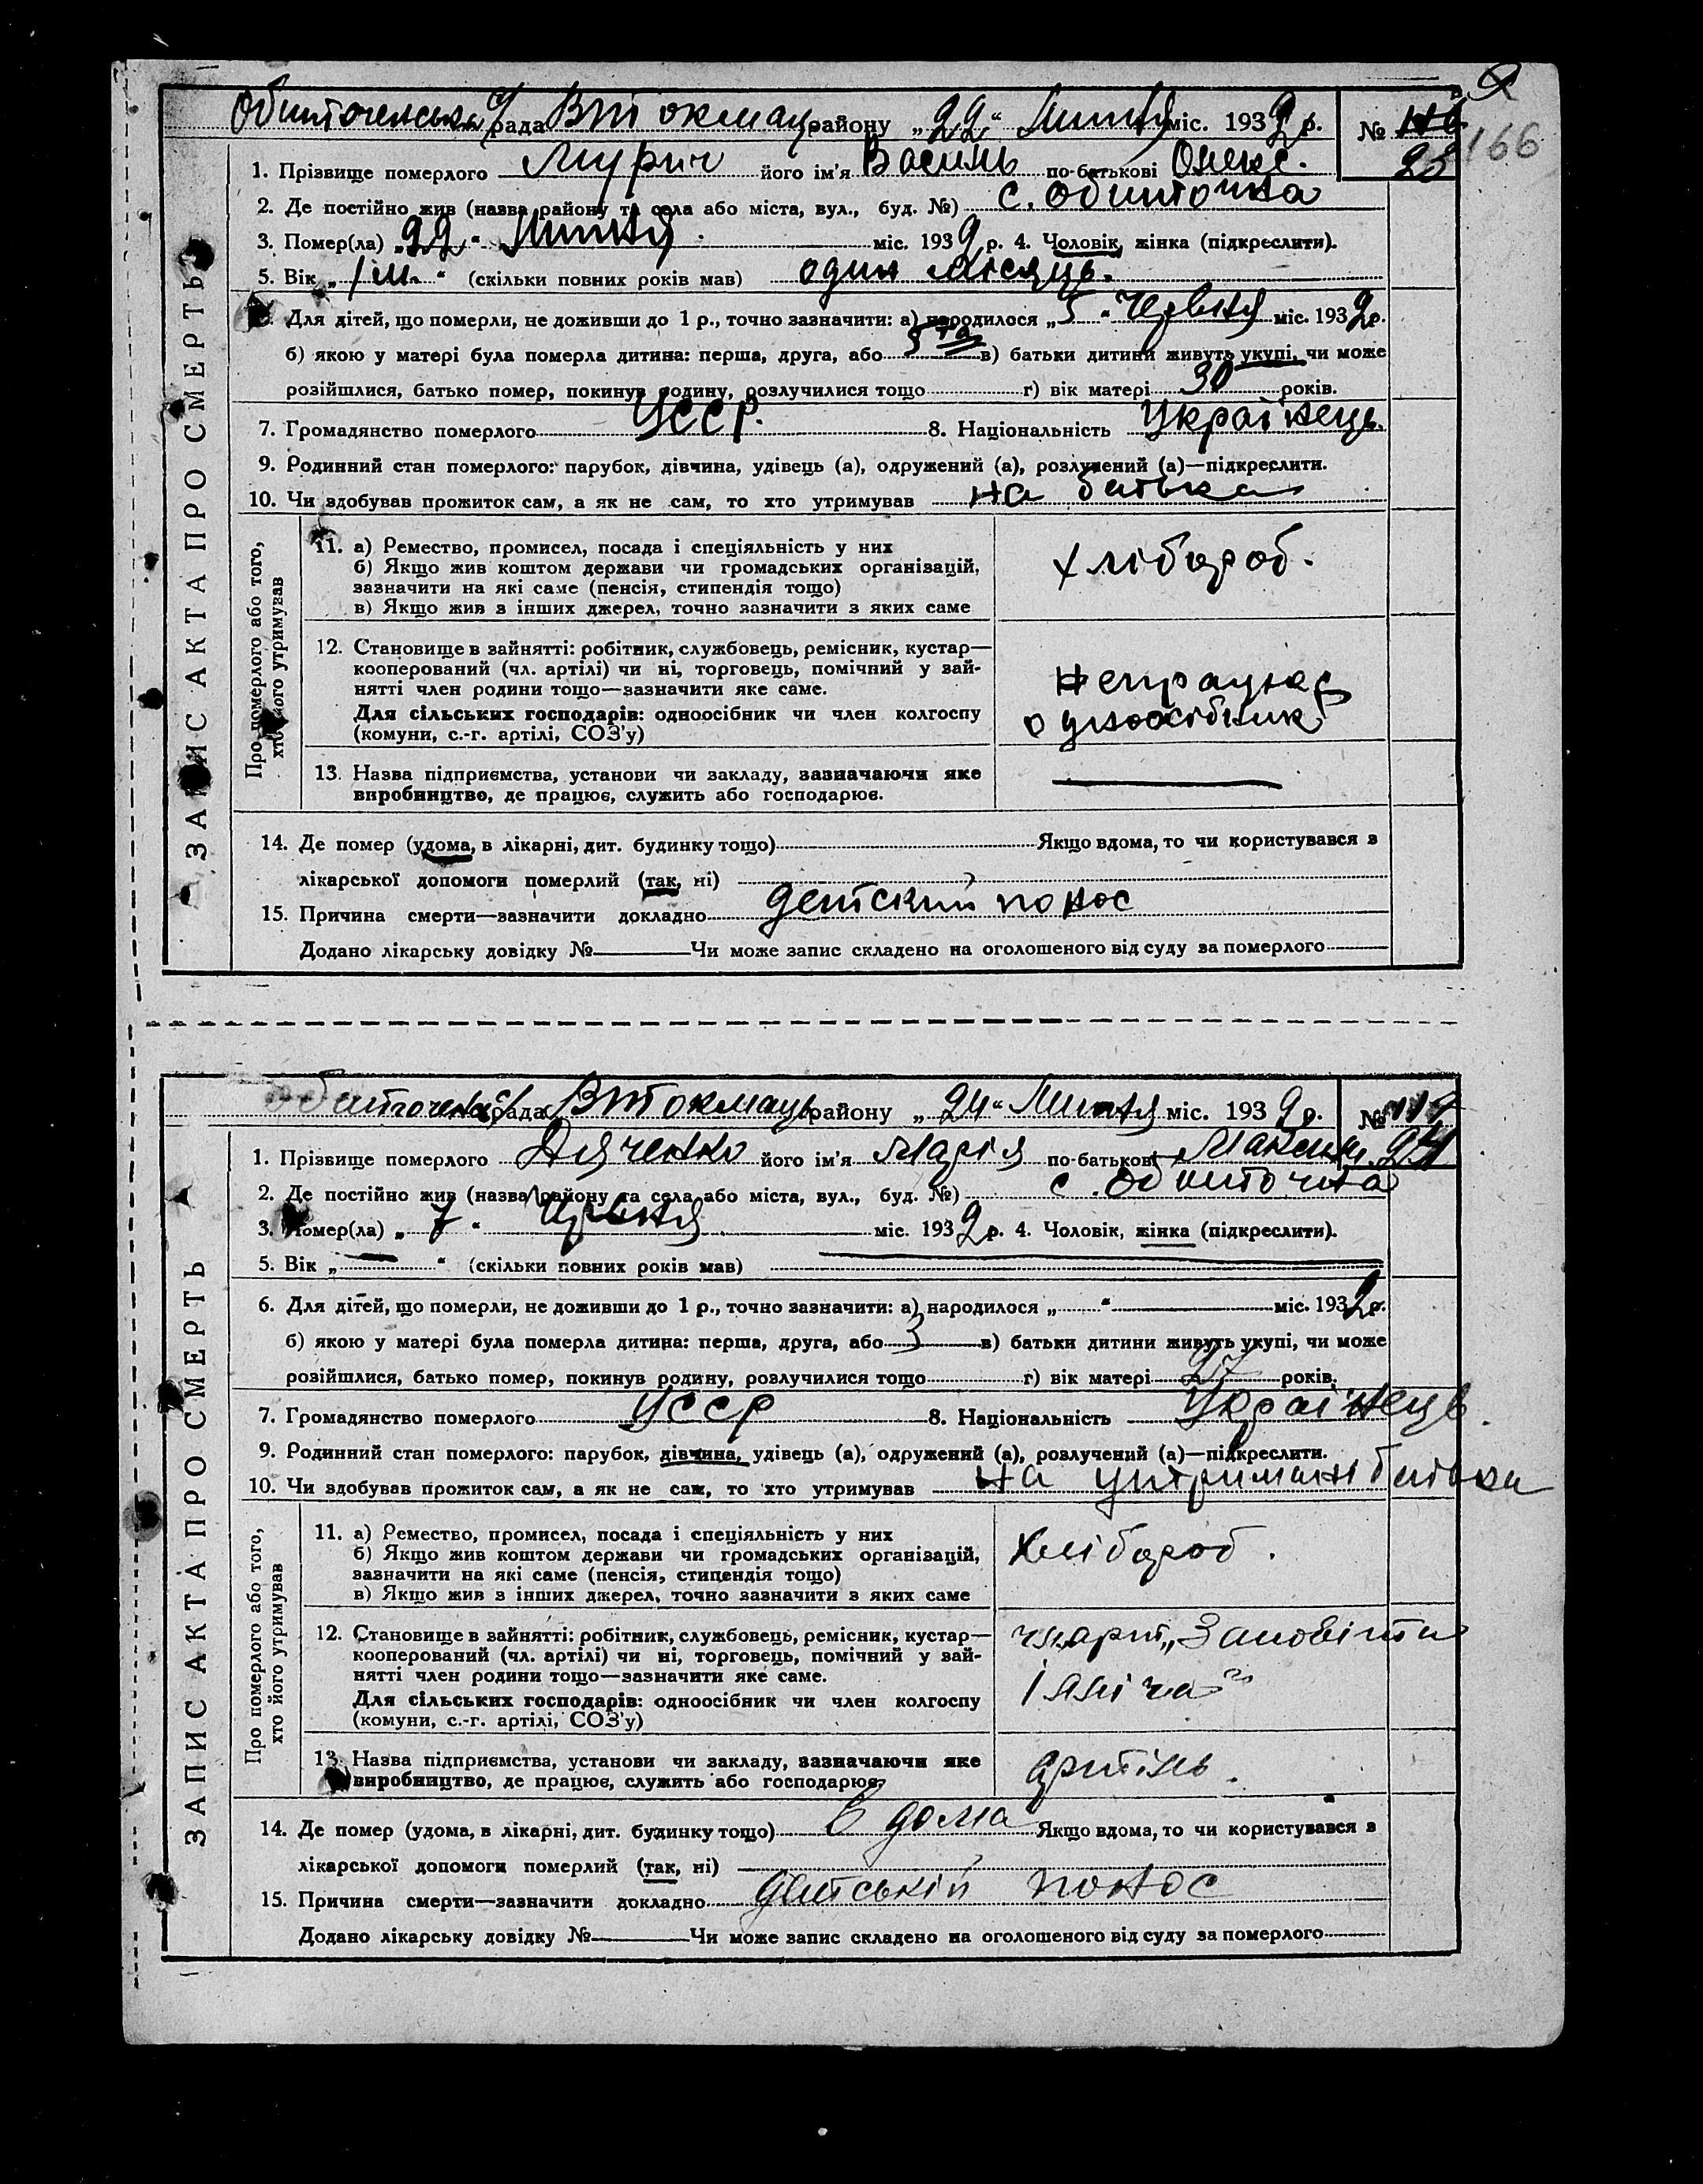 Обиточенська с/рада В.-Токмацьк району „22“ Липня міс. 1932 р. № 116
166
23
1. Прізвище померлого Мурич його ім'я Василь по-батькові Олекс.
2. Де постійно жив (назва району та села або міста, вул., буд. №) с. Обиточна
3. Помер(ла) „22“ Липня міс. 1932 р. 4. Чоловік, жінка (підкреслити).
5. Вік „1 м.“ (скільки повних років мав) один місяць.
Для дітей, що померли, не доживши до 1 р., точно зазначити: а) народилося „5“ Червня міс. 1932 р.
б) якою у матері була померла дитина: перша, друга, або 5та в) батьки дитини живуть укупі, чи може
розійшлися, батько помер, покинув родину, розлучилися тощо г) вік матері 30 років.
7. Громадянство померлого УССР. 8. Національність Українець.
9. Родинний стан померлого: парубок, дівчина, удівець (а), одружений (а), розлучений (а)—підкреслити.
10. Чи здобував прожиток сам, а як не сам, то хто утримував на батька
Про померлого або того,
хто його утримував
11. а) Ремество, промисел, посада і спеціяльність у них
б) Якщо жив коштом держави чи громадських організацій,
зазначити на які саме (пенсія, стипендія тощо)
в) Якщо жив з інших джерел, точно зазначити з яких саме
хлібороб.
12. Становище в зайнятті: робітник, службовець, ремісник, кустар—
кооперований (чл. артілі) чи ні, торговець, помічний у зай-
нятті член родини тощо—зазначити яке саме.
Для сільських господарів: одноосібник чи член колгоспу
(комуни, с.-г. артілі, СОЗ'у)
Непрацює
одноосібник
13. Назва підприємства, установи чи закладу, зазначаючи яке
виробництво, де працює, служить або господарює.
14. Де помер (удома, в лікарні, дит. будинку тощо) Якщо вдома, то чи користувався з
лікарської допомоги померлий (так, ні)
15. Причина смерти—зазначити докладно детский понос
Додано лікарську довідку № Чи може запис складено на оголошеного від суду за померлого
ЗАПИС АКТА ПРО СМЕРТЬ
Обиточенс с/рада В.-Токмацьк району „24“ Липня міс. 1932 р. № 117
24
1. Прізвище померлого Дяченко його ім'я Марія по-батькові Максим.
2. Де постійно жив (назва району та села або міста, вул., буд. №) с. Обиточна
3. Помер(ла) „7“ Червня міс. 1932 р. 4. Чоловік, жінка (підкреслити).
5. Вік „—“ (скільки повних років мав)
6. Для дітей, що померли, не доживши до 1 р., точно зазначити: а) народилося „ “ міс. 1932 р.
б) якою у матері була померла дитина: перша, друга, або 3 в) батьки дитини живуть укупі, чи може
розійшлися, батько помер, покинув родину, розлучилися тощо г) вік матері 27 років.
7. Громадянство померлого УССР 8. Національність Українець.
9. Родинний стан померлого: парубок, дівчина, удівець (а), одружений (а), розлучений (а)—підкреслити.
10. Чи здобував прожиток сам, а як не сам, то хто утримував на утриман батька
Про померлого або того,
хто його утримував
11. а) Ремество, промисел, посада і спеціяльність у них
б) Якщо жив коштом держави чи громадських організацій,
зазначити на які саме (пенсія, стипендія тощо)
в) Якщо жив з інших джерел, точно зазначити з яких саме
Хлібороб.
12. Становище в зайнятті: робітник, службовець, ремісник, кустар—
кооперований (чл. артілі) чи ні, торговець, помічний у зай-
нятті член родини тощо—зазначити яке саме.
Для сільських господарів: одноосібник чи член колгоспу
(комуни, с.-г. артілі, СОЗ'у)
чл. арт. „Заповіти
Ілліча“
13. Назва підприємства, установи чи закладу, зазначаючи яке
виробництво, де працює, служить або господарює.
артіль.
14. Де помер (удома, в лікарні, дит. будинку тощо) в дома Якщо вдома, то чи користувався з
лікарської допомоги померлий (так, ні)
15. Причина смерти—зазначити докладно детській понос
Додано лікарську довідку № Чи може запис складено на оголошеного від суду за померлого
ЗАПИС АКТА ПРО СМЕРТЬ